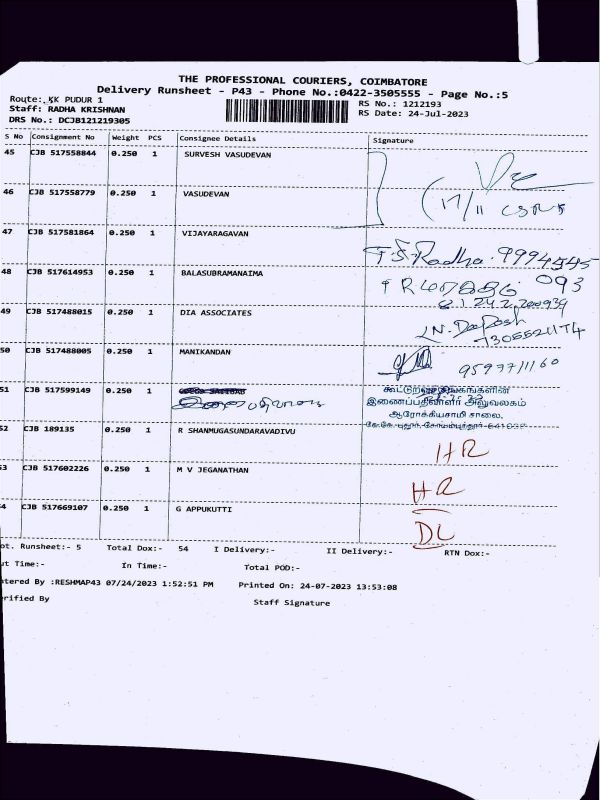 THE PROFESSIONAL COURIERS, COIMBATORE
Delivery Runsheet - P43 - Phone No.:0422-3505555 - Page No.:5
Route: KK PUDUR 1
RS No.: 1212193
Staff: RADHA KRISHNAN
RS Date: 24-Jul-2023
DRS No.: DCJB121219305
S No Consignment No Weight PCS Consignee Details Signature
45 CJB 517558844 0.250 1 SURVESH VASUDEVAN
46 CJB 517558779 0.250 1 VASUDEVAN
17/11
47 CJB 517581864 0.250 1 VIJAYARAGAVAN
T.S. Radha. 9994545
093
48 CJB 517614953 0.250 1 BALASUBRAMANAIMA
49 CJB 517488015 0.250 1 DIA ASSOCIATES
50 CJB 517488005 0.250 1 MANIKANDAN
51 CJB 517599149 0.250 1
இணைப்பதிவாளர் அலுவலகம்
ஆரோக்கியசாமி சாலை,
52 CJB 189135 0.250 1 R SHANMUGASUNDARAVADIVU HR
53 CJB 517602226 0.250 1 M V JEGANATHAN HR
54 CJB 517669107 0.250 1 G APPUKUTTI DL
ot. Runsheet:- 5 Total Dox:- 54 I Delivery:- II Delivery:- RTN Dox:-
ut Time:- In Time:- Total POD:-
ntered By :RESHMAP43 07/24/2023 1:52:51 PM Printed On: 24-07-2023 13:53:08
erified By Staff Signature